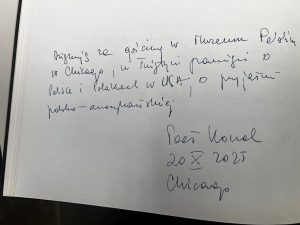 Dziękuję za gościnę w Muzeum Polskim
w Chicago, w świątyni pamięci o
Polsce i Polakach w USA, o przyjaźni
polsko-amerykańskiej
20 X 2025
Chicago